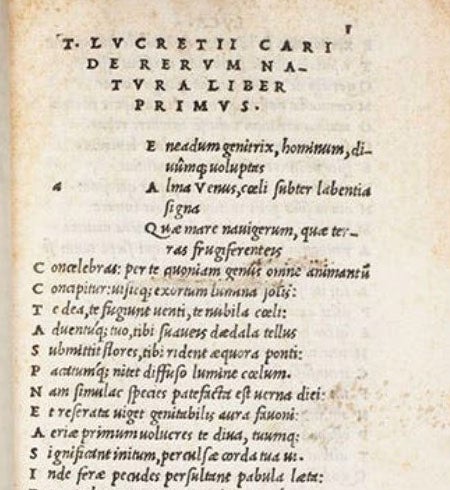 1
T. LVCRETII CARI
DE RERVM NA-
TVRA LIBER
PRIMVS.
E neadum genitrix, hominum, di-
uûmq; uoluptas
a A lma Venus, cœli subter labentia
signa
Q uæ mare nauigerum, quæ ter-
ras frugiferenteis
C oncelebras: per te quoniam genus omne animantũ
C oncipitur: uisitq; exortum lumina solis:
T e dea, te fugiunt uenti, te nubila cœli:
A duentuq; tuo, tibi suaueis dædala tellus
S ubmittit flores, tibi rident æquora ponti:
P acatumq; nitet diffuso lumine cœlum.
N am simulac species patefacta est uerna diei:
E t reserata uiget genitabilis aura fauoni:
A eriæ primum uolucres te diua, tuumq;
S ignificant initum, perculsæ corda tua ui.
I nde feræ pecudes persultant pabula læta: